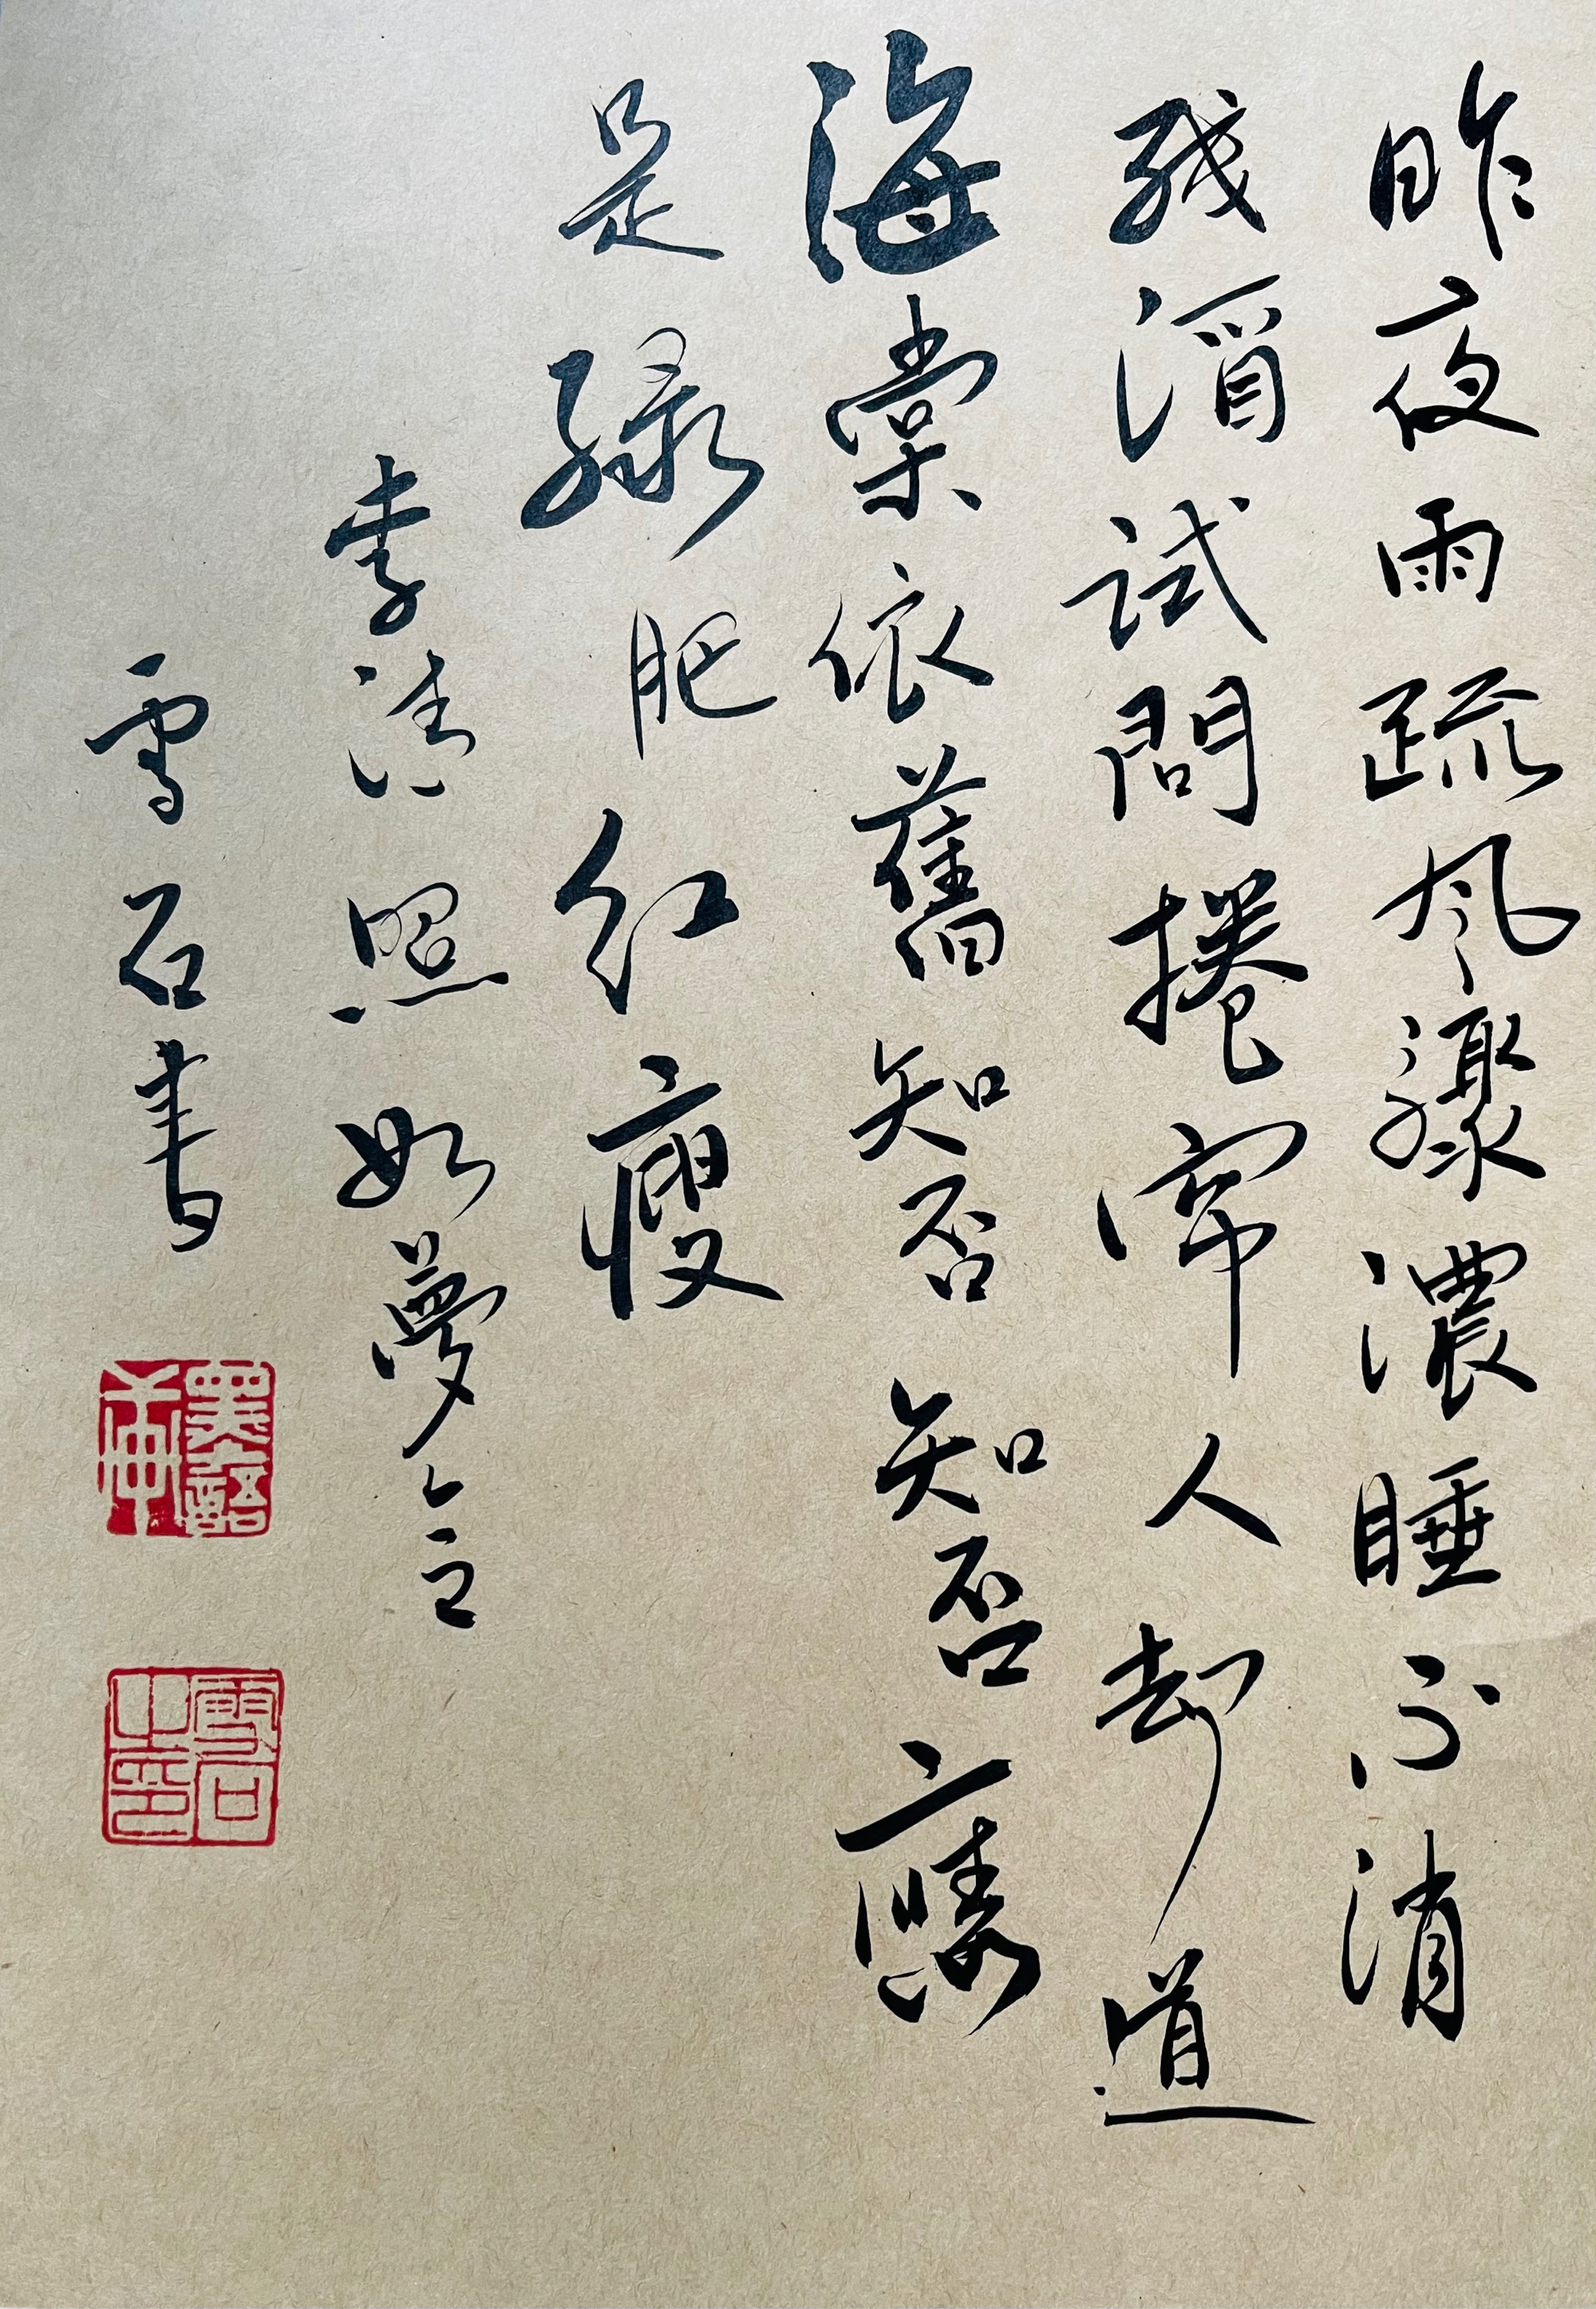 昨夜雨疏風驟濃睡不消
残酒試問捲帘人却道
海棠依舊知否知否應
是緑肥紅瘦
李清照如夢令
雪石書
雪石之印